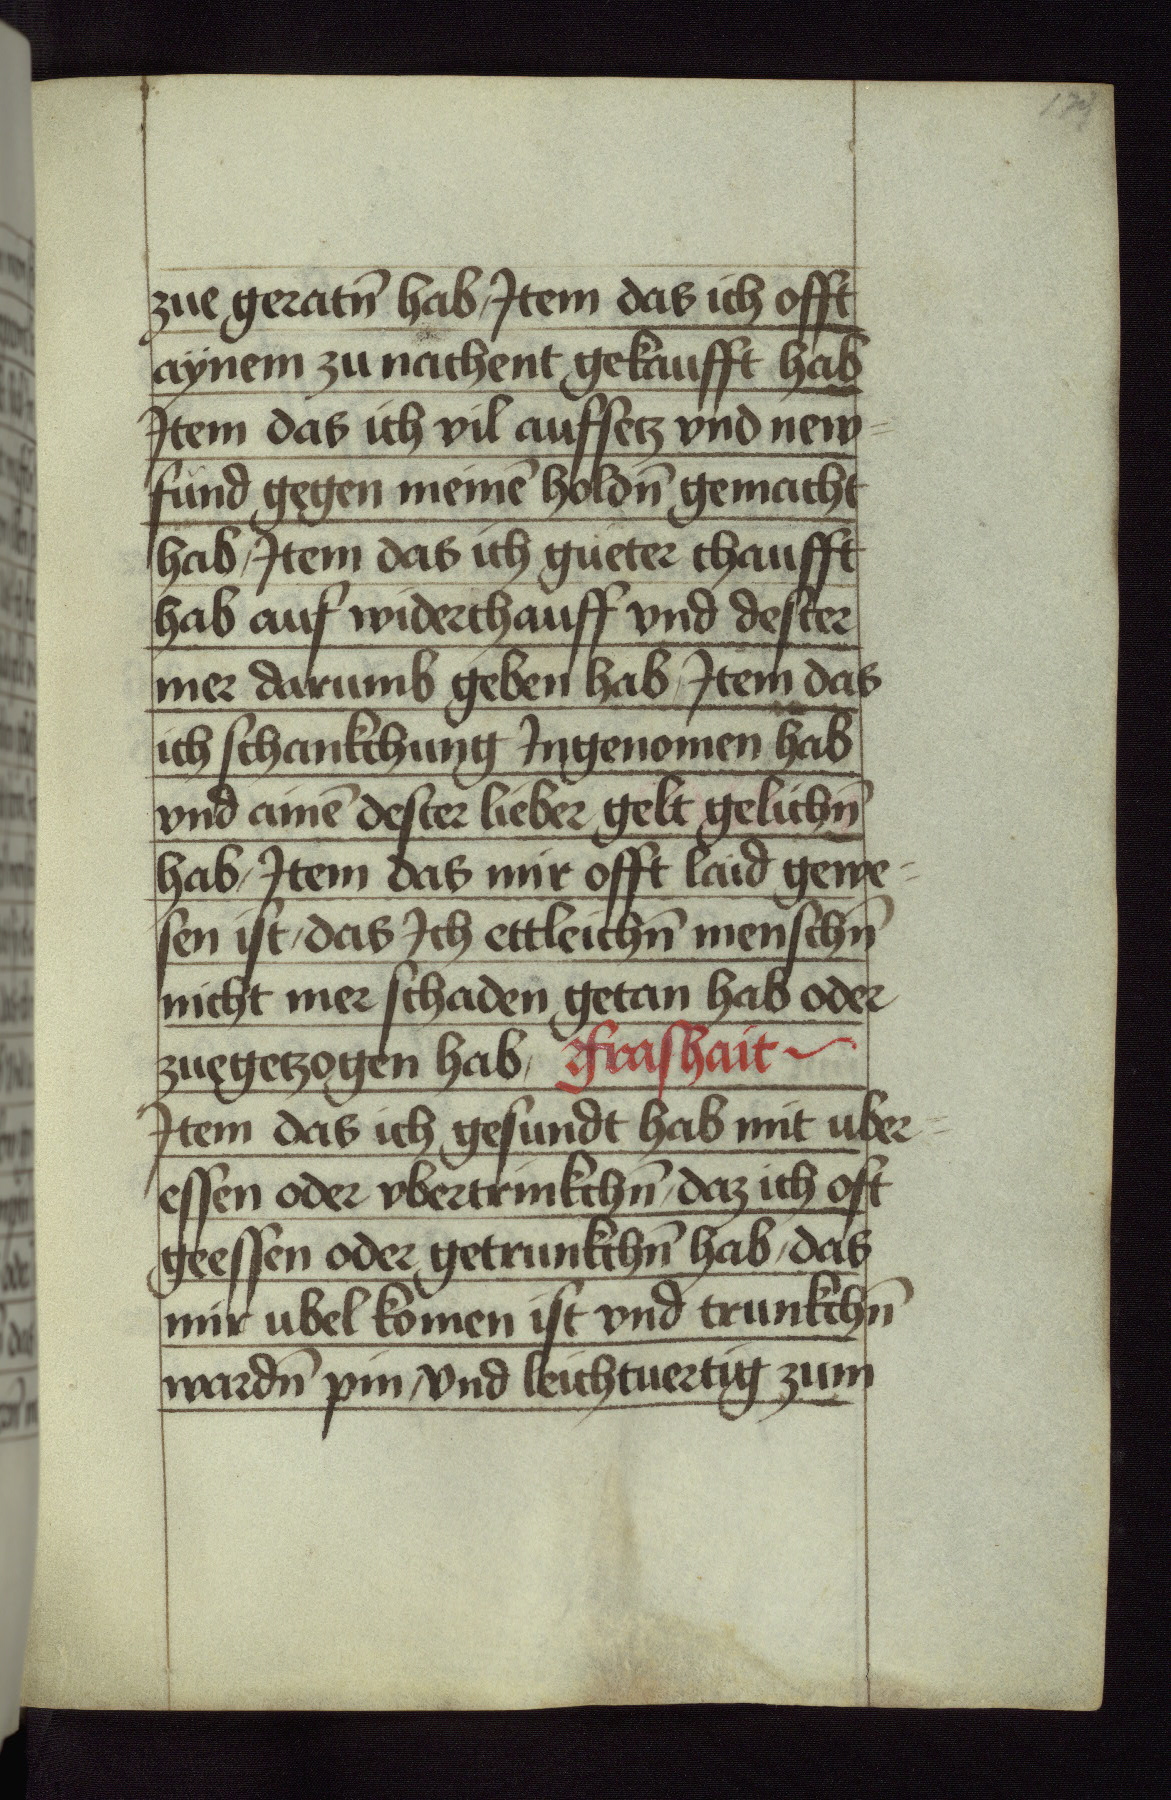 zue geratn̄ hab / Item das ich offt
aÿnem zu nachent gekaufft hab
Item das ich vil aufsetz vnd new=
fund gegen meinē holdn̄ gemacht
hab / Item das ich gueter chaufft
hab auf widerchauff vnd dester
mer darumb geben hab / Item das
ich schankchung Ingenomen hab
vnd ainē dester lieber gelt gelichn̄
hab / Item das mir offt laid gewe=
sen ist / das Ich ettleichn̄ menschn̄
nicht mer schaden getan hab oder
zuegetzogen hab / Frashait
Item das ich gesundt hab mit uber=
essen oder vbertrinkchn̄ / daz ich oft
geessen oder getrunkchn̄ hab / das
mir ubel komen ist vnd trunkchn̄
wardn̄ pin / vnd leichtuertig zum